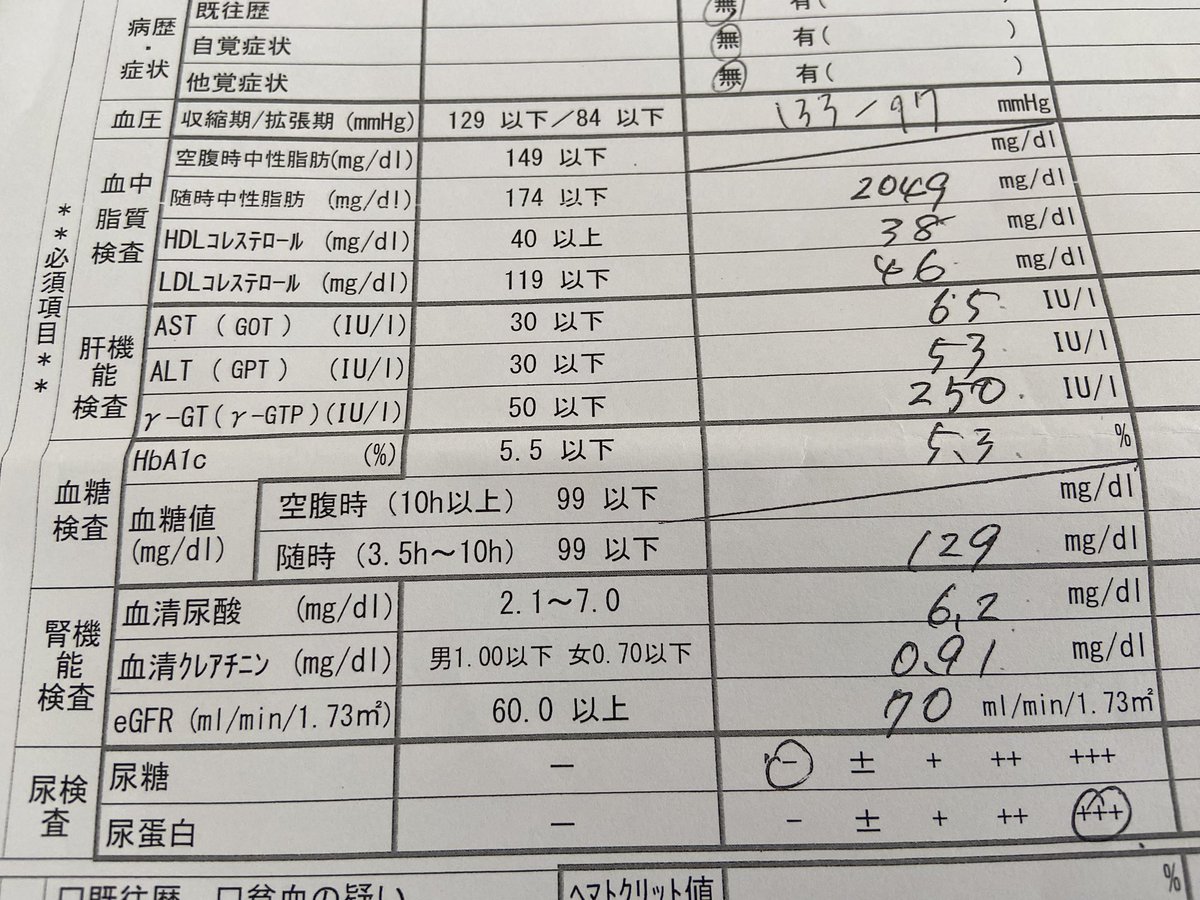 既往歴 無 有(
病歴・症状 自覚症状 無 有( )
他覚症状 無 有( )
血圧 収縮期/拡張期 (mmHg) 129 以下/84 以下 133/97 mmHg
**必須項目**
血中脂質検査 空腹時中性脂肪(mg/dl) 149 以下 mg/dl
随時中性脂肪 (mg/dl) 174 以下 2049 mg/dl
HDLコレステロール (mg/dl) 40 以上 38 mg/dl
LDLコレステロール (mg/dl) 119 以下 46 mg/dl
肝機能検査 AST (GOT) (IU/l) 30 以下 65 IU/l
ALT (GPT) (IU/l) 30 以下 53 IU/l
γ-GT(γ-GTP)(IU/l) 50 以下 250 IU/l
血糖検査 HbA1c (%) 5.5 以下 5.3 %
血糖値(mg/dl) 空腹時 (10h以上) 99 以下 mg/dl
随時 (3.5h~10h) 99 以下 129 mg/dl
腎機能検査 血清尿酸 (mg/dl) 2.1~7.0 6.2 mg/dl
血清クレアチニン (mg/dl) 男1.00以下 女0.70以下 0.91 mg/dl
eGFR (ml/min/1.73㎡) 60.0 以上 70 ml/min/1.73㎡
尿検査 尿糖 - - ± + ++ +++
尿蛋白 - - ± + ++ +++
□既往歴 □貧血の疑い ヘマトクリット値 %